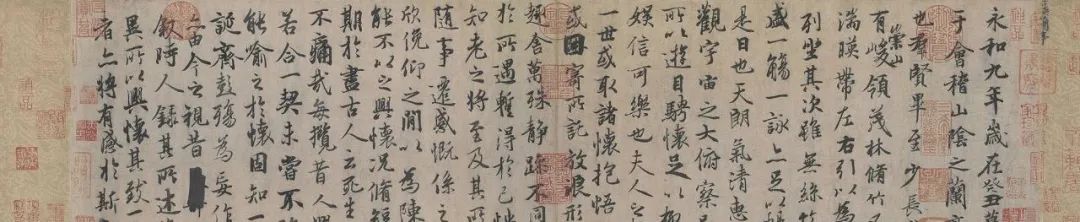 永和九年歲在癸丑
于會稽山陰之蘭
也羣賢畢至少長
有崇山峻領茂林脩竹
湍暎帶左右引以爲
列坐其次雖無絲竹
盛一觴一詠亦足以暢
是日也天朗氣清惠
觀宇宙之大俯察品
所以遊目騁懷足以極
娛信可樂也夫人之
一世或取諸懷抱悟
或因寄所託放浪形
趣舍萬殊靜躁不同
於所遇蹔得於己快
知老之將至及其所
隨事遷感慨係之
欣俛仰之閒以爲陳
能不以之興懷況脩短
期於盡古人云死生
不痛哉每攬昔人興
若合一契未嘗不
能喻之於懷固知一
誕齊彭殤爲妄作
由今之視昔
敘時人錄其所述
異所以興懷其致一
者亦將有感於斯